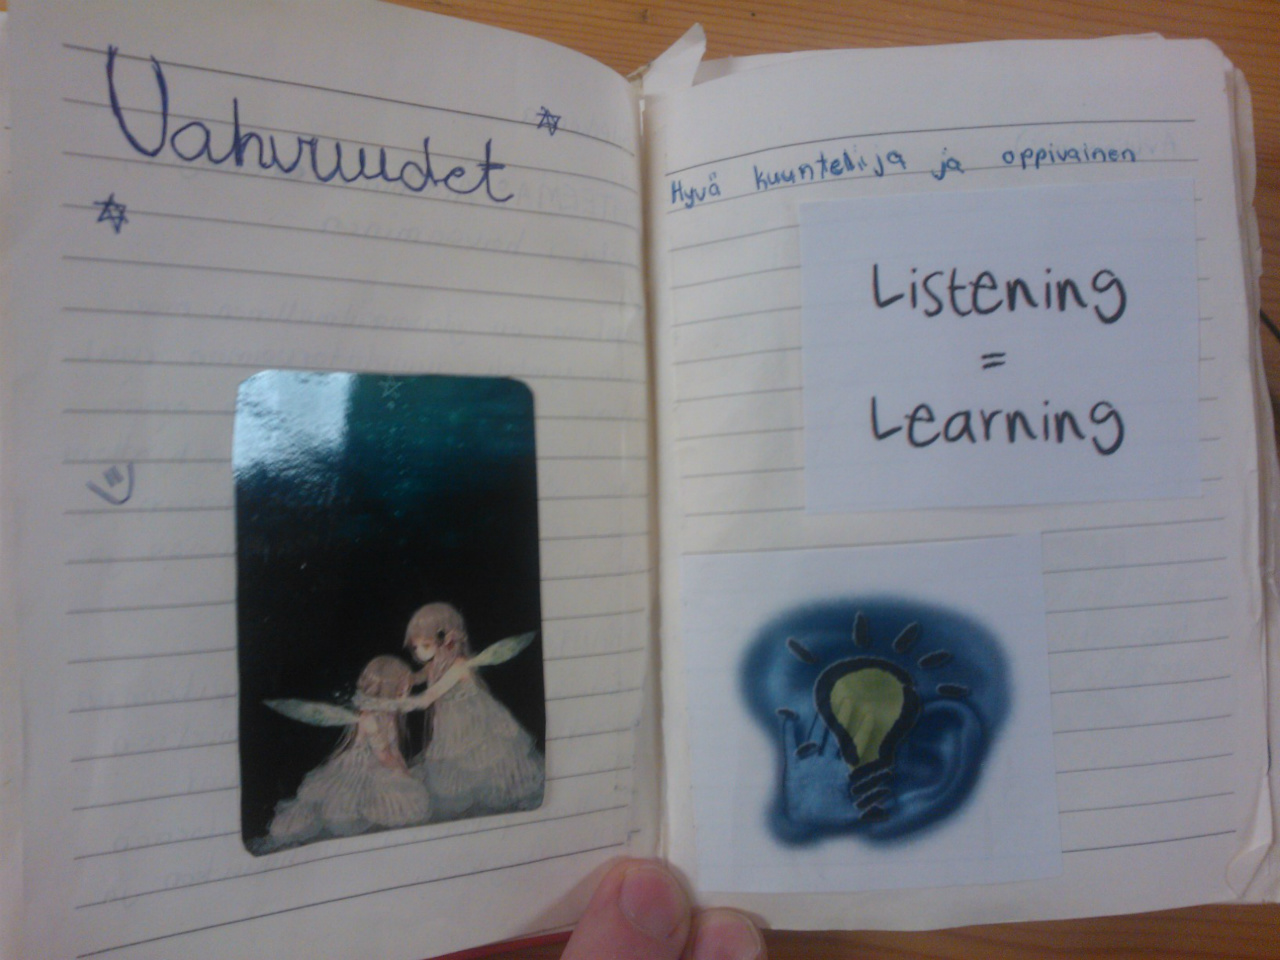 Vahvuudet
Hyvä kuuntelija ja oppivainen
Listening
=
Learning